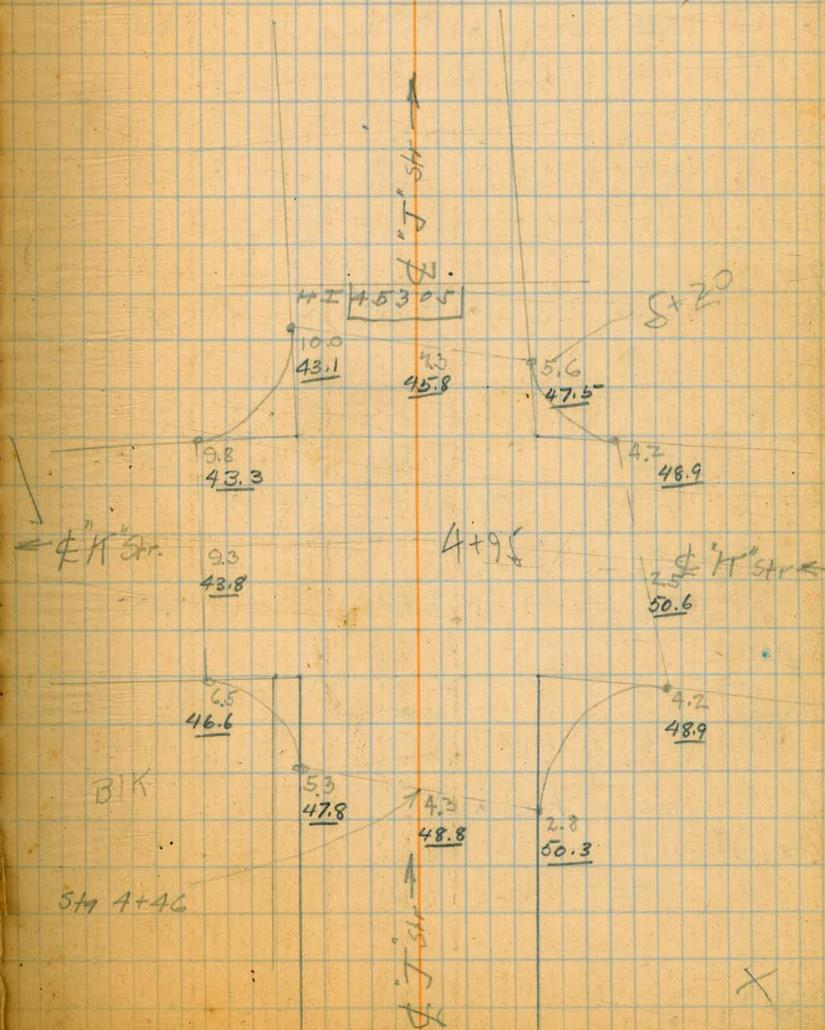 ℄ "J" Str
HI 453 05
S+20
10.0
43.1
7.3
45.8
5.6
47.5
9.8
43.3
4.2
48.9
℄ "K" Str.
4+95
9.3
43.8
2.5
50.6
℄ "K" Str
6.5
46.6
4.2
48.9
BlK
5.3
47.8
4.3
48.8
2.8
50.3
Sta 4+46
℄ "J" Str
X